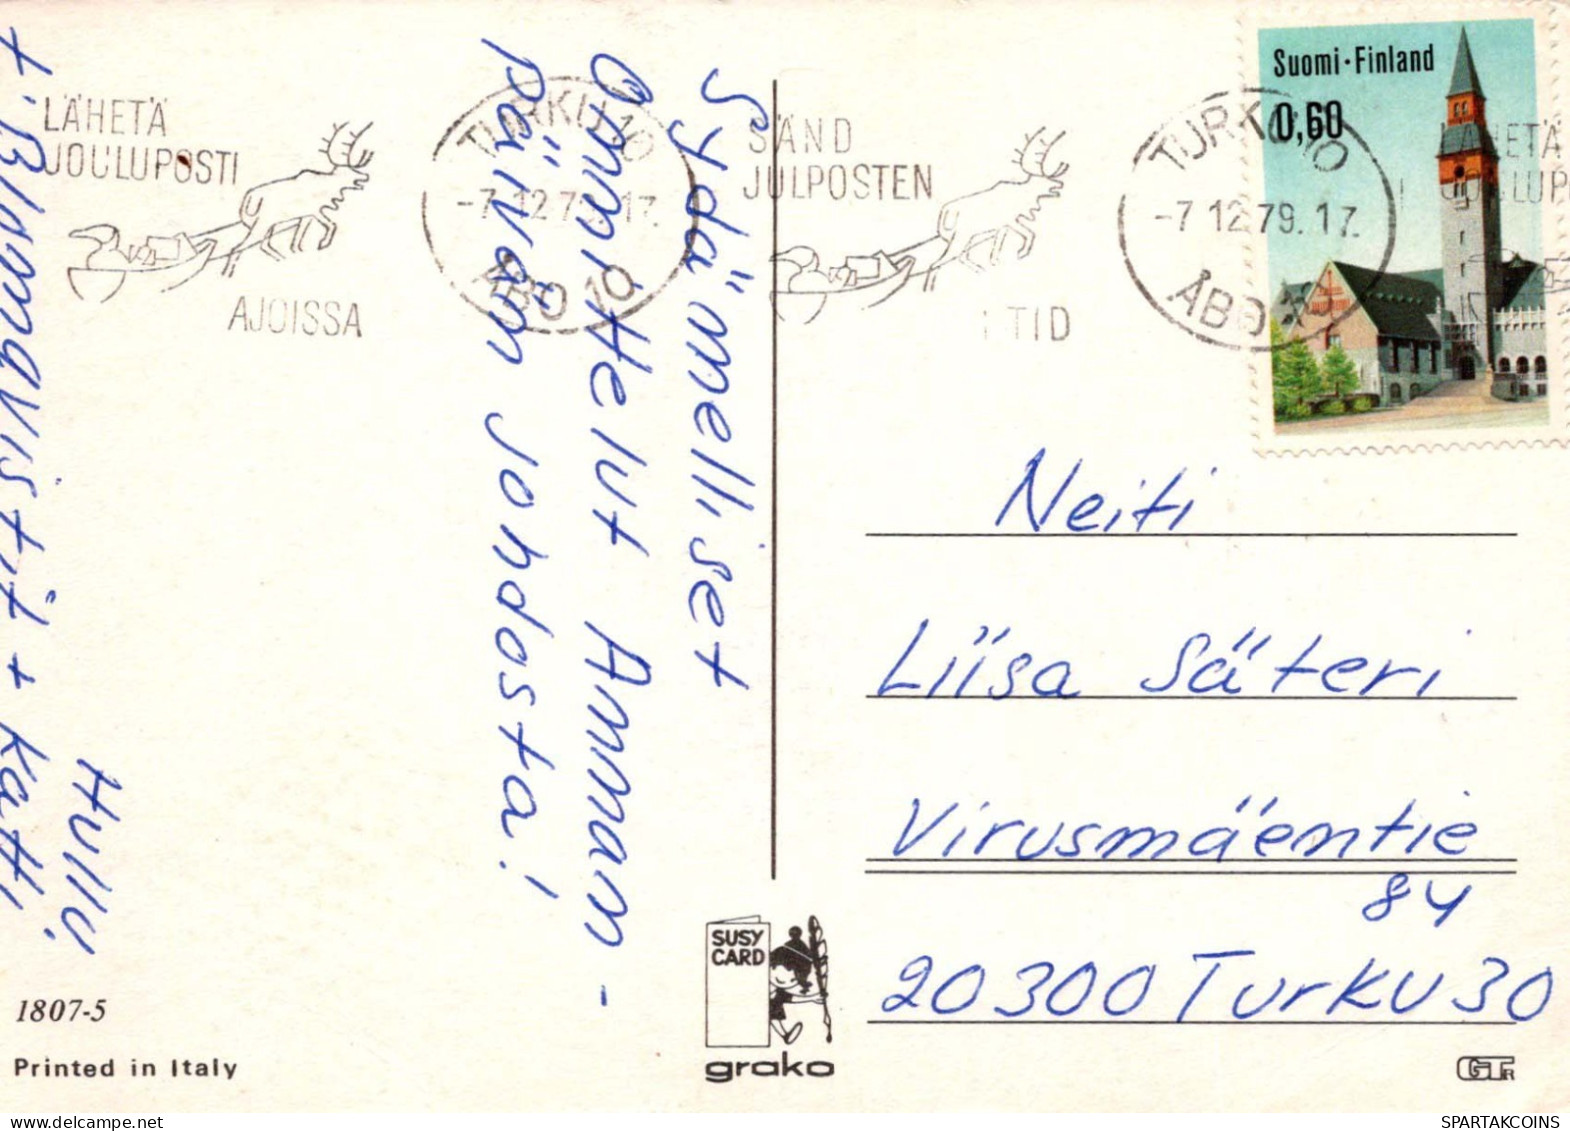 LÄHETÄ
JOULUPOSTI
AJOISSA
TURKU 10
-7.12.79.17.
ÅBO 10
SÄND
JULPOSTEN
I TID
TURKU 10
-7.12.79.17.
ÅBO 10
LÄHETÄ
JOULUPO
Suomi·Finland
0,60
Sydämelliset
Onnittelut Annan-
päivän johdosta!
Hullu,
t. Blomqvistit + Katti
Neiti
Liisa Säteri
Virusmäentie
84
20300 Turku 30
SUSY
CARD
grako
1807-5
Printed in Italy
SPARTAKCOINS